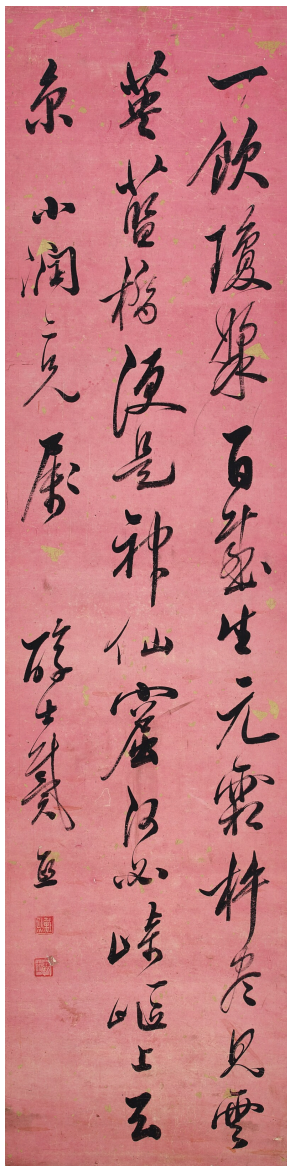 一飲瓊漿百感生元霜杵盡見雲
英藍橋便是神仙窟何必崎嶇上玉
京 小潤二兄屬 醇士戴熙